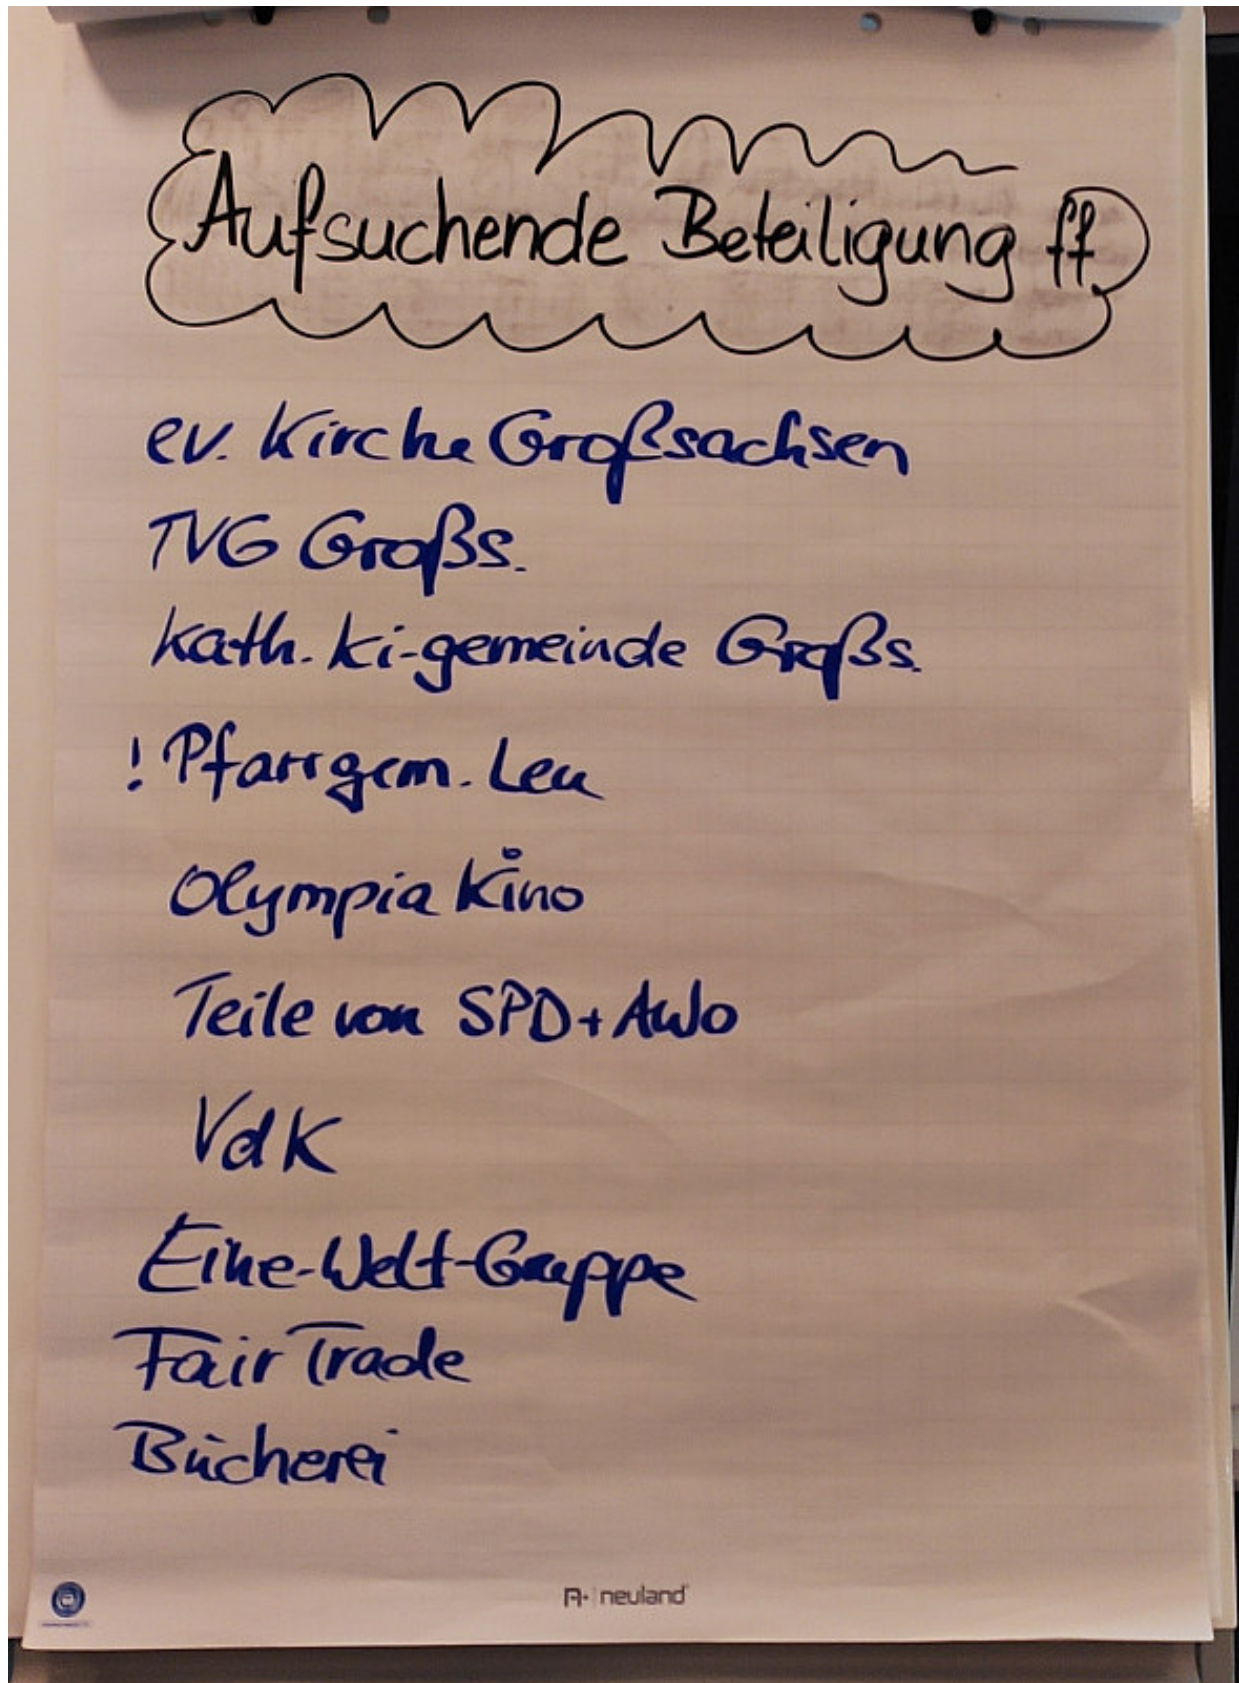 Aufsuchende Beteiligung ff
ev. Kirche Großsachsen
TVG Großs.
Kath. Ki-gemeinde Großs.
! Pfarrgem. Leu
Olympia Kino
Teile von SPD + AWo
VdK
Eine-Welt-Gruppe
Fair Trade
Bücherei
neuland